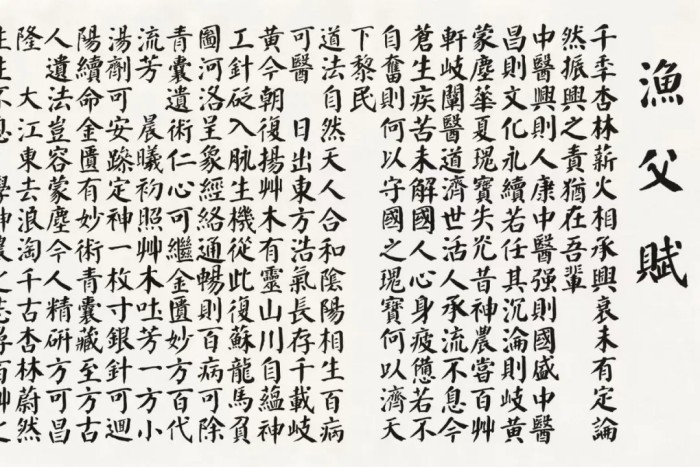 漁父賦
千秊杏林薪火相承興衰未有定論
然振興之責猶在吾輩
中醫興則人康中醫强則國盛中醫
昌則文化永續若任其沉淪則岐黄
蒙塵華夏瑰寶失光昔神農嘗百艸
軒岐闡醫道濟世活人承流不息今
蒼生疾苦未解國人心身疲憊若不
自奮則何以守國之瑰寶何以濟天
下黎民
道法自然天人合和陰陽相生百病
可醫 日出東方浩氣長存千載岐
黄今朝復揚艸木有靈山川自蘊神
工針砭入脉生機從此復蘇龍馬負
圖河洛呈象經絡通暢則百病可除
青囊遺術仁心可繼金匱妙方百代
流芳 晨曦初照艸木吐芳一方小
湯劑可安躁定神一枚寸銀針可迴
陽續命金匱有妙術青囊藏至方古
人遺法豈容蒙塵今人精研方可昌
隆 大江東去浪淘千古杏林蔚然